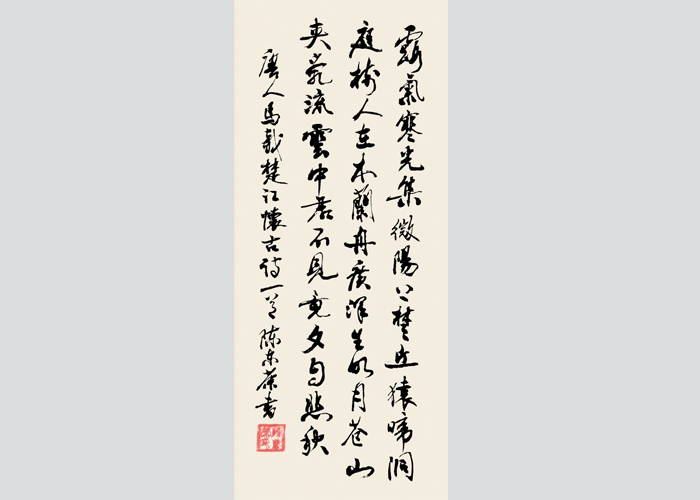 露氣寒光集微陽下楚丘猿啼洞
庭樹人在木蘭舟廣澤生明月蒼山
夾亂流雲中君不見竟夕自悲秋
唐人馬戴楚江懷古詩一首 陳東書